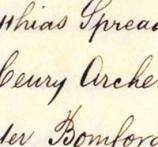 thias Spread
Henry Archer
ter Bomford